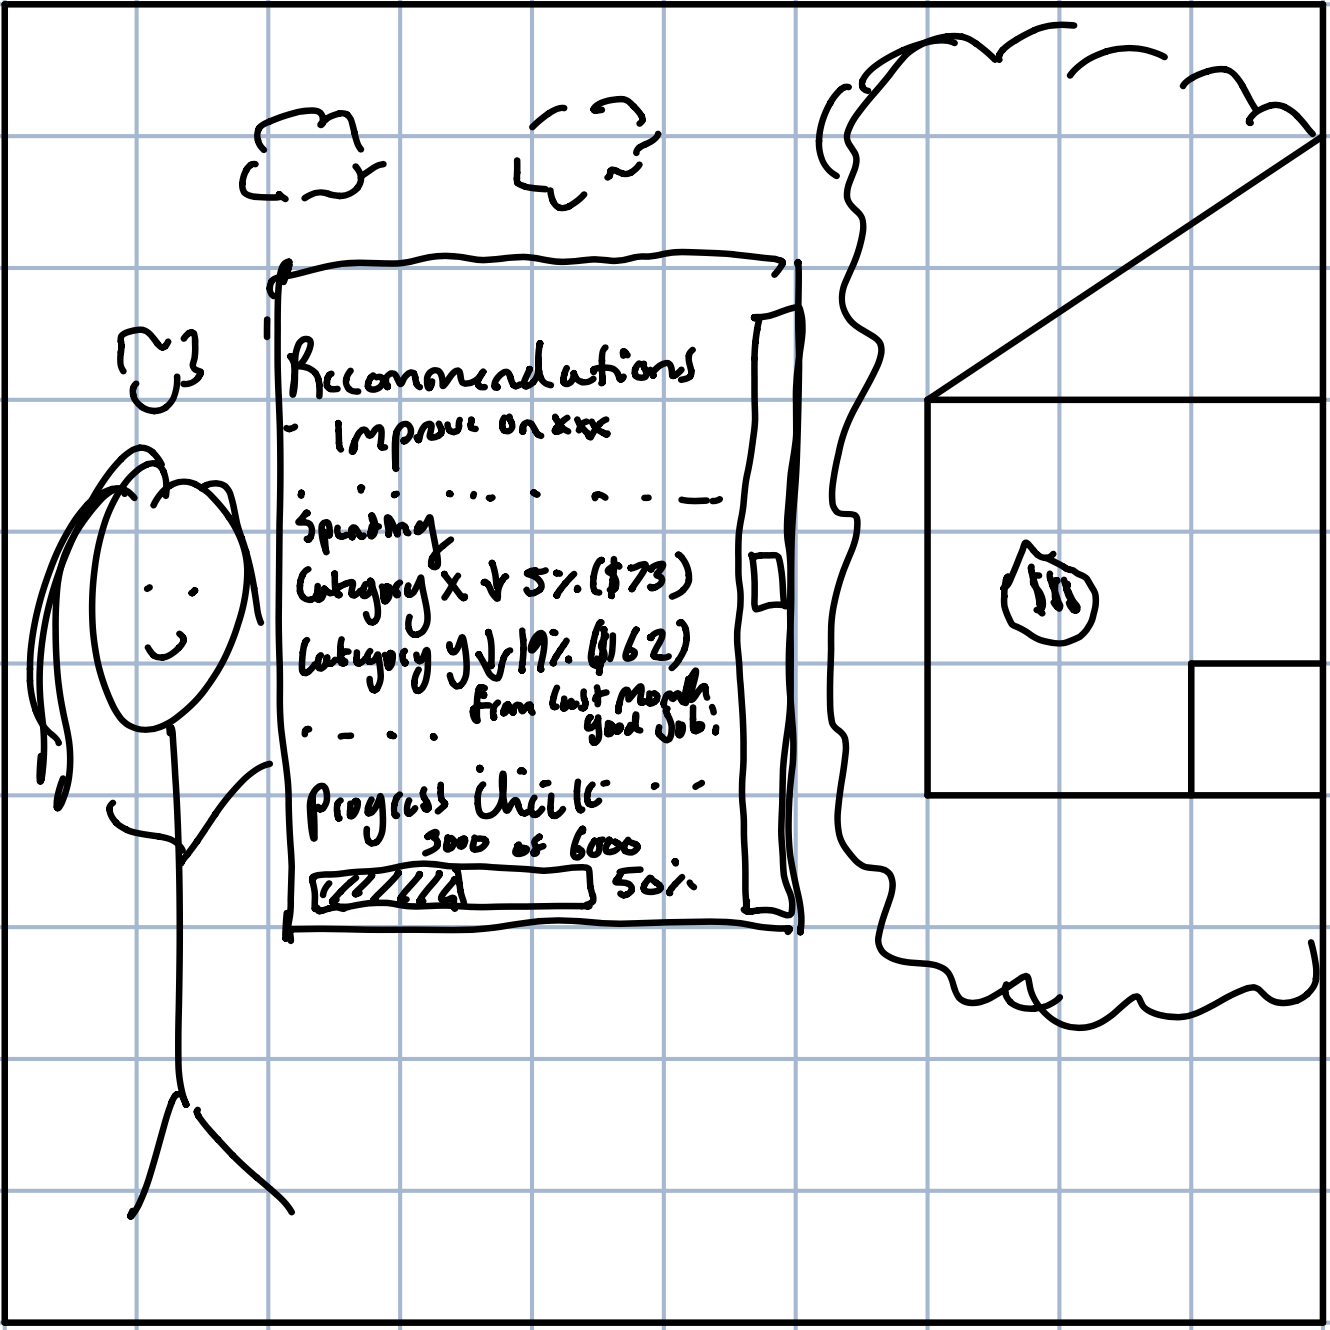 Recommendations
- Improve on xxx
Spending
Category X ↓ 5% ($73)
Category Y ↓ 19% ($162)
from last month
good job!
Progress Check
3000 of 6000
50%